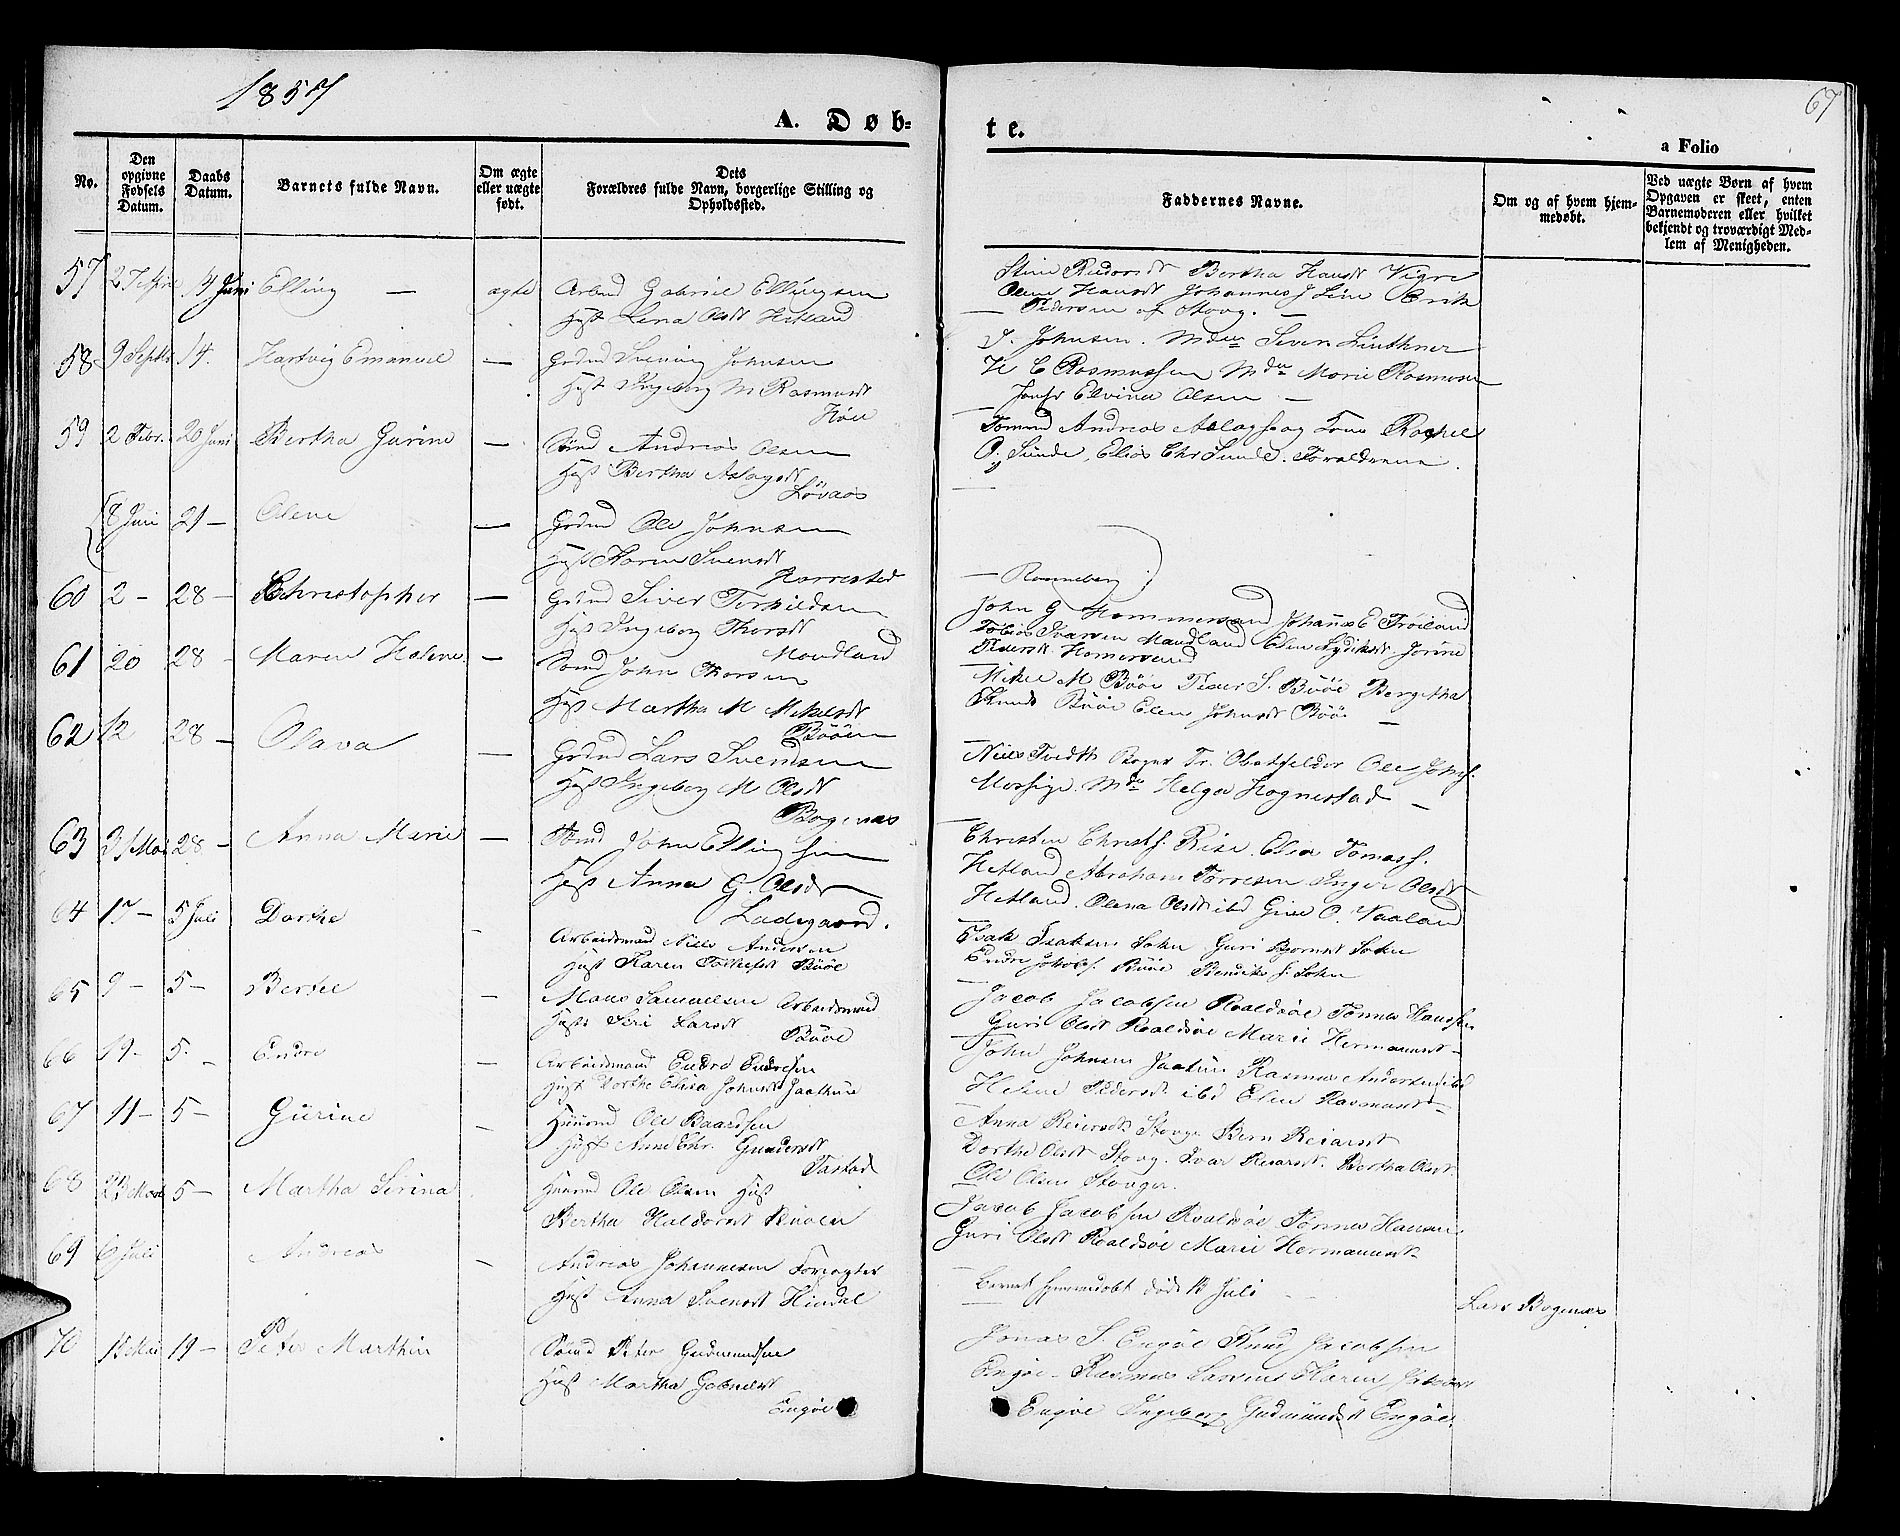 1857
67
A. Døb-
te.
a Folio
No.
Den opgivne Fødsels Datum.
Daabs Datum.
Barnets fulde Navn.
Om ægte eller uægte født.
Dets Forældres fulde Navn, borgerlige Stilling og Opholdssted.
Faddernes Navne.
Om og af hvem hjemmedøbt.
Ved uægte Børn af hvem Opgaven er skeet, enten Barnemoderen eller hvilket bekjendt og troværdigt Medlem af Menigheden.
57 Juni Elling — ægte Arbmd Gabriel Ellingsen
Hust Lena Olsdt Hetland
Bertha Hansdt Vigre
Olene Hansdt Johannes J Lien Erik
Pedersen af Stavg. —
58 9 Septbr 14. Hartvig Emanuel — Grdmd Svening Johnsen
Hust Ingeborg M Rasmusdt
J. Johnsen. Mdm Siven Linthner
H C Rasmussen Mdm Marie Rasmusen
Jomfr Elvina Olsen —
59 2 Febr. 20 Juni Bertha Gurine — Andreas Olsen
Hust Bertha Aslagsdt
Løvaas
Tomine Andreas Aslagsen og Kone Rachel
O. Sunde, Elias Chr Sunde. Forældrene.
8 Juni 21 — Olene — Grdmd Ole Johnsen
Hust Karen Svensdt
Harrestad
— Ranneberg
60 2 — 28 — Christopher — Grdmd Siver Torkildsen
Hust Ingeborg Thorsdt
Maudland
John G Hommersand Johannes E Trøiland
Tobias Ivarsen Maudland Elen Lydiksdt Jorine
Hommersand
61 20 28 — Maren Helene — John Thorsen
Hust Martha M Mikelsdt
Bøöen
Mikel M Bøöe Peder S. Bøöe Bergitha
Knuds Bøöe Elen Johnsdt Bøöe —
62 12 28 — Olava — Grdmd Lars Svendsen
Hust Ingeborg M Olsdt
Bogenæs
Niels Tvedt Ole Johns.
Mossige. Mdm Helga Hognestad —
63 31 Mai 28 — Anna Marie — John Ellingsen
Hust Anna G. Olsdt
Ladegaard.
Christen Christs. Rise. Elen Tomass.
Hetland Abraham Torresen Inger Olsdt
Hetland. Olena Olsdt ibd Giue O. Vaaland
64 17 — 5 Juli Dorthe — Arbeidsmand Niels Andersen
Hust Karen Tollefsdt Bøöe
Isak Isaksen Sokn Guri Bjornsdt Sokn
Endre Jakobs. Bøöe Bendiks f. Sokn
65 9 — 5 — Bertel — Mons Samuelsen Arbeidsmand
Hust Siri Larsdt Bøöe
Jacob Jacobsen Roaldsöe Tønnes Hansen
Guri Olsdt Roaldsöe Marie Hermansdt —
66 19 — 5. — Endre — Arbeidsmand Endre Endresen
Hust Dorthe Elisa Johnsdt Jaathun
John Johnsen Jaatun Rasmus Andersen ibd
Helene Pedersdt ibd Elen Rasmusdt —
67 11 — 5 — Gurine — Huusmd Ole Baardsen
Hust Anne Chr. Gundersdt
Tastad
Anna Reiersdt Stavgr Bern Reiarsdt
Dorthe Olsdt Stavg. Ivar Reiarsdt. Bertha Olsdt
Ole Olsen Stavger.
68 23 Mai 5 — Martha Serina Huusmd Ole Olsen Hust
Bertha Haldorsdt Bøöen
Jacob Jacobsen Roaldsöe Tønnes Hansen
Guri Olsdt Roaldsöe Marie Hermansdt
69 6 Juli Andreas — Andreas Johannesen Forpagter
Hust Anna Svensdt Hindal
Barnet hjemmedøbt død 12 Juli
Lars Bogenæs
70 15 Mai 19 — Peter Marthin Peter Gudmundsen
Hust Martha Gabrielsdt
Engöe
Jonas S. Engöe Knud Jacobsen
Engöe — Rasmus Larsens Karen
Engöe Ingeborg Gudmundsdt Engöe